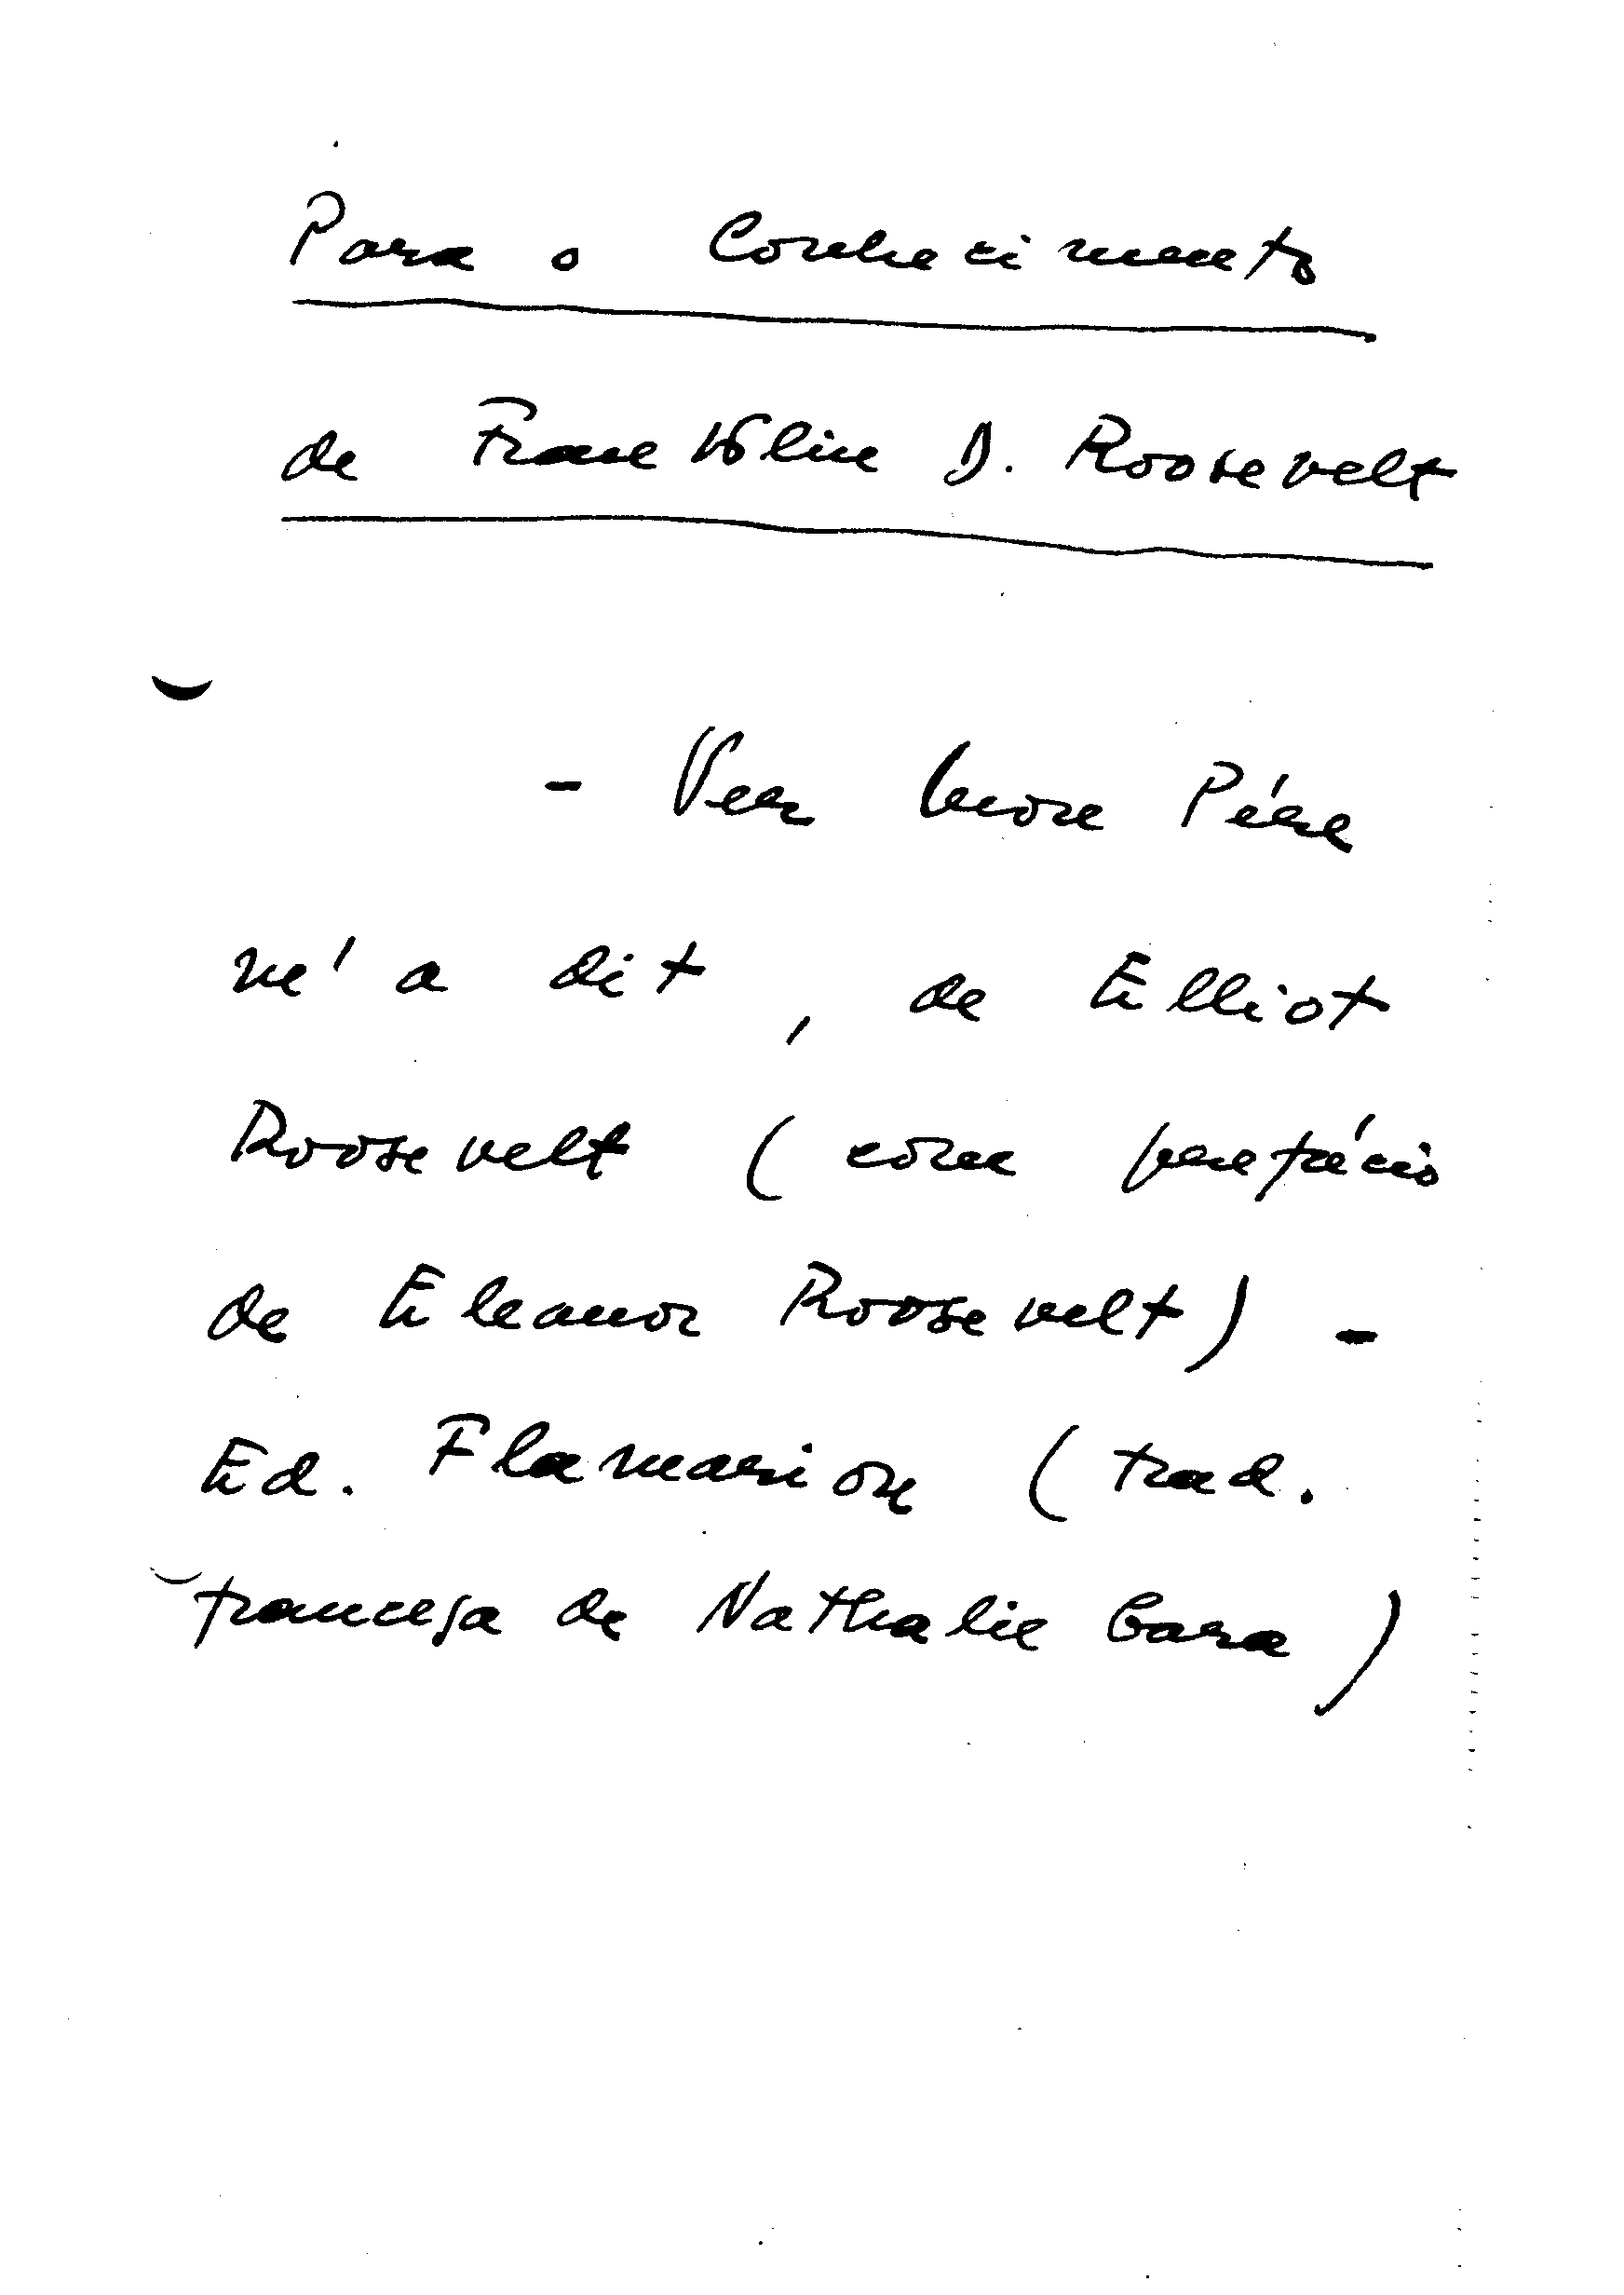 Para o Conhecimento
de Franklin D. Roosevelt
- Ver Mon Pére
m'a dit, de Elliot
Roosevelt (com prefácio
de Eleanor Roosevelt) -
Ed. Flamarion (trad.
francesa de Nathalie Gara)